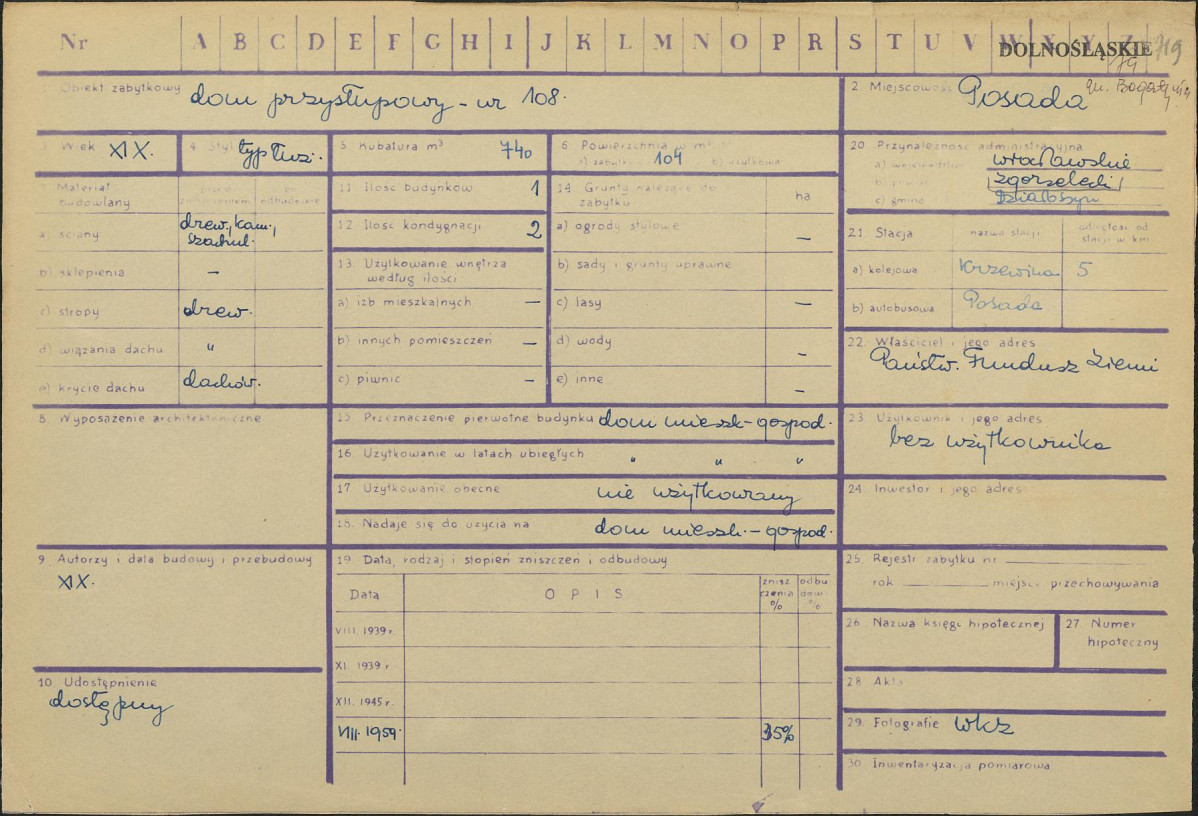 Nr A B C D E F G H I J K L M N O P R S T U V W X Y Z
DOLNOŚLĄSKIE 719
gm. Bogatynia
Obiekt zabytkowy dom przysłupowy - nr 108.
2 Miejscowość Posada
3 Wiek XIX.
4 Styl typ łuż.
5 Kubatura m³ 740
6 Powierzchnia w m²
a) zabytk. 104 b) użytkowa
20 Przynależność administracyjna
a) województwo wrocławskie
b) powiat zgorzelecki
c) gmina Działoszyn
7 Materiał budowlany przed zniszczeniem po odbudowie
a) ściany drew, kam, szachul.
b) sklepienia –
c) stropy drew.
d) wiązania dachu "
e) krycie dachu dachów.
11 Ilość budynków 1
12 Ilość kondygnacji 2
13. Użytkowanie wnętrza
według ilości
a) izb mieszkalnych –
b) innych pomieszczeń –
c) piwnic –
14 Grunty należące do
zabytku ha
a) ogrody stylowe –
b) sady i grunty uprawne
c) lasy –
d) wody –
e) inne –
21 Stacja nazwa stacji odległość od
stacji w km
a) kolejowa Krzewina 5
b) autobusowa Posada
22. Właściciel i jego adres
Państw. Fundusz Ziemi
8. Wyposażenie architektoniczne
15 Przeznaczenie pierwotne budynku dom mieszk-gospod.
16. Użytkowanie w latach ubiegłych " " "
17. Użytkowanie obecne nie użytkowany
18. Nadaje się do użycia na dom mieszk.-gospod.
23 Użytkownik i jego adres
bez użytkownika
24. Inwestor i jego adres
9. Autorzy i data budowy i przebudowy
XIX.
19 Data, rodzaj i stopień zniszczeń i odbudowy
Data O P I S znisz
czenia
% odbu
dow
%
VIII. 1939 r.
XI. 1939 r.
XII. 1945 r.
VIII. 1959. 35%
25. Rejestr zabytku nr
rok miejsce przechowywania
26 Nazwa księgi hipotecznej
27 Numer
hipoteczny
10. Udostępnienie
dostępny
28 Akta
29. Fotografie WKZ
30 Inwentaryzacja pomiarowa